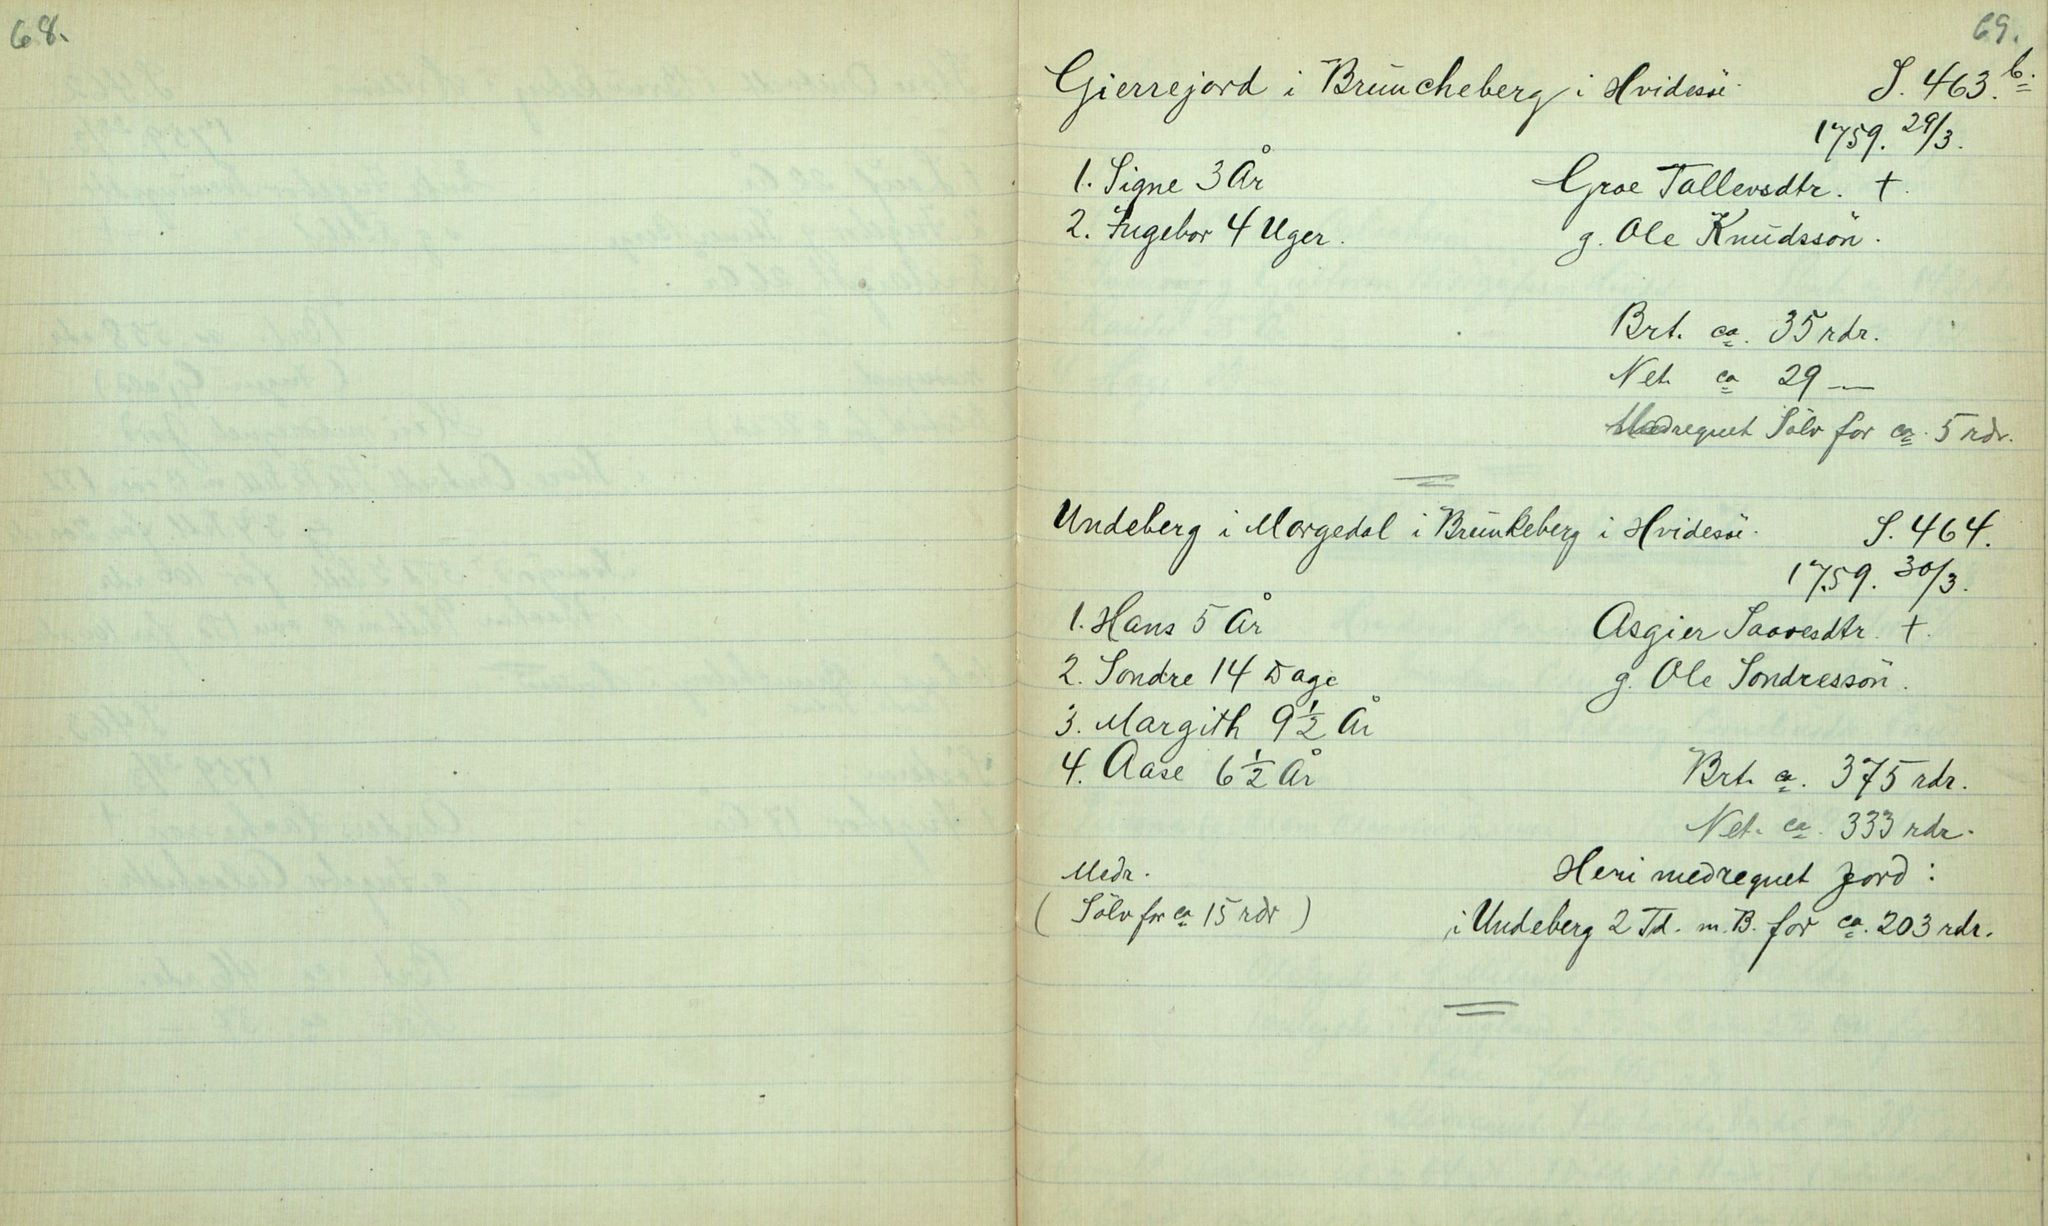 68.
69.
Gierrejord i Brŭncheberg i Hvidesöe. S. 463.b.
1759. 29/3.
1. Signe 3 År Groe Tallevsdtr. †.
2. Ingebor 4 Uger. g. Ole Knŭdssön.
Brt. ca. 35 rdr.
Net. ca 29 —
Medregnet Sölv for ca. 5 rdr.
Undeberg i Morgedal i Brŭnkeberg i Hvidesöe. S. 464.
1759. 30/3.
1. Hans 5 År Asgier Saavesdtr. †.
2. Sondre 14 Dage g. Ole Sondressön.
3. Margith 9 1/2 År
4. Aase 6 1/2 År Brt. ca. 375 rdr.
Net. ca. 333 rdr.
Medr. Heri medregnet Jord:
( Sölv for ca 15 rdr ) i Undeberg 2 Td. m. B. for ca. 203 rdr.